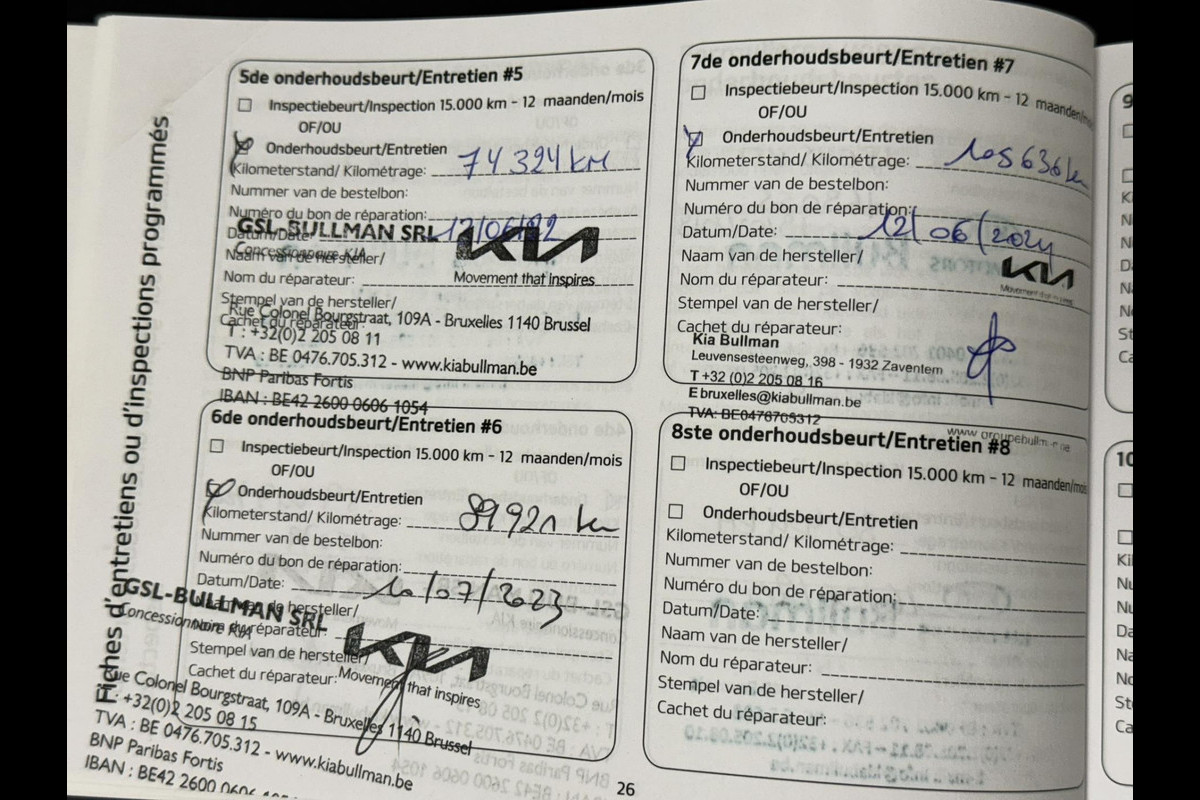 Fiches d'entretiens ou d'inspections programmés
5de onderhoudsbeurt/Entretien #5
Inspectiebeurt/Inspection 15.000 km - 12 maanden/mois
OF/OU
Onderhoudsbeurt/Entretien
Kilometerstand/ Kilométrage: 74 324 KM
Nummer van de bestelbon:
Numéro du bon de réparation:
Datum/Date: /06/22
GSL-BULLMAN SRL
Concessionnaire KIA
KIA
Movement that inspires
Naam van de hersteller/
Nom du réparateur:
Stempel van de hersteller/
Cachet du réparateur:
Rue Colonel Bourgstraat, 109A - Bruxelles 1140 Brussel
T : +32(0)2 205 08 11
TVA : BE 0476.705.312 - www.kiabullman.be
BNP Paribas Fortis
IBAN : BE42 2600 0606 1054
6de onderhoudsbeurt/Entretien #6
Inspectiebeurt/Inspection 15.000 km - 12 maanden/mois
OF/OU
Onderhoudsbeurt/Entretien
Kilometerstand/ Kilométrage: 89 921 km
Nummer van de bestelbon:
Numéro du bon de réparation:
Datum/Date: 10/07/2023
GSL-BULLMAN SRL
Concessionnaire KIA
KIA
Movement that inspires
Naam van de hersteller/
Nom du réparateur:
Stempel van de hersteller/
Cachet du réparateur:
Rue Colonel Bourgstraat, 109A - Bruxelles 1140 Brussel
T : +32(0)2 205 08 15
TVA : BE 0476.705.312 - www.kiabullman.be
BNP Paribas Fortis
IBAN : BE42 2600
26
7de onderhoudsbeurt/Entretien #7
Inspectiebeurt/Inspection 15.000 km - 12 maanden/mois
OF/OU
Onderhoudsbeurt/Entretien
Kilometerstand/ Kilométrage: 105 636 km
Nummer van de bestelbon:
Numéro du bon de réparation:
Datum/Date: 12/06/2024
Naam van de hersteller/
Nom du réparateur:
KIA
Movement that inspires
Stempel van de hersteller/
Cachet du réparateur:
Kia Bullman
Leuvensesteenweg, 398 - 1932 Zaventem
T +32 (0)2 205 08 16
E bruxelles@kiabullman.be
TVA: BE0476705312
8ste onderhoudsbeurt/Entretien #8
Inspectiebeurt/Inspection 15.000 km - 12 maanden/mois
OF/OU
Onderhoudsbeurt/Entretien
Kilometerstand/ Kilométrage:
Nummer van de bestelbon:
Numéro du bon de réparation:
Datum/Date:
Naam van de hersteller/
Nom du réparateur:
Stempel van de hersteller/
Cachet du réparateur: